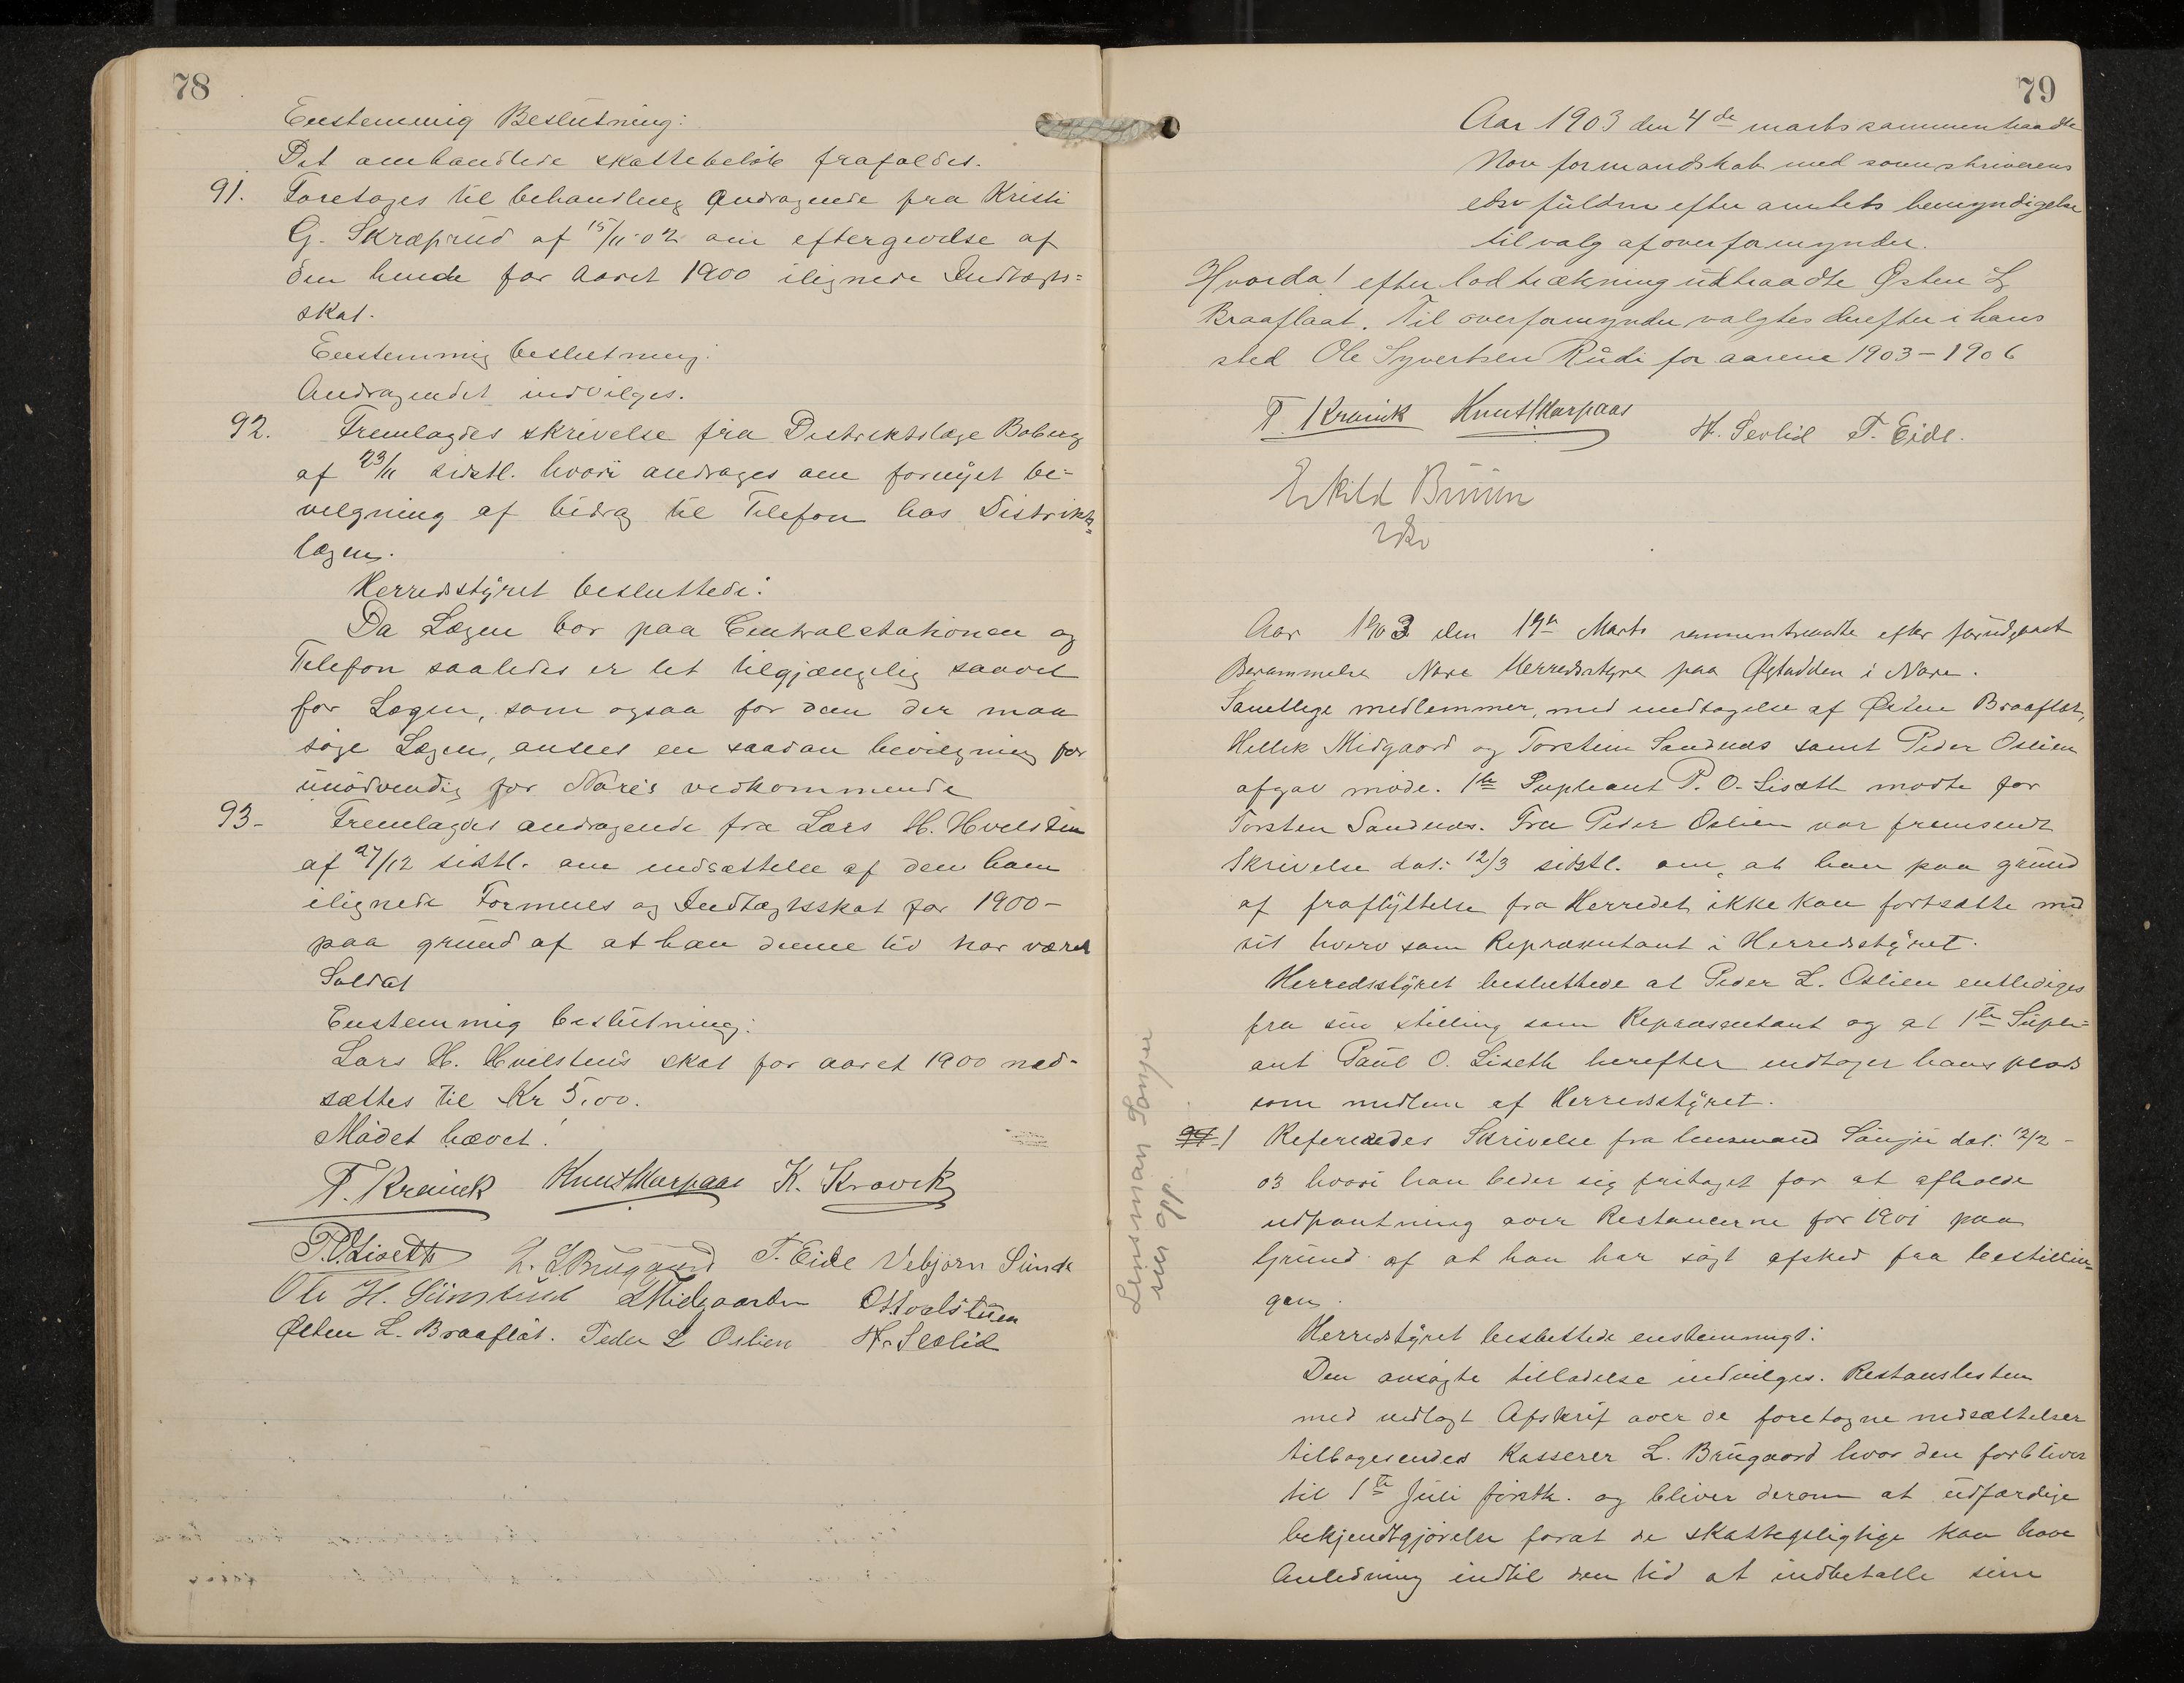 78
Eenstemmig Beslutning:
Det omhandlede skattebeløb frafaldes.
91. Foretoges til behandling Andragende fra Kristi
G. Skræprud af 15/11-02 om eftergivelse af
den hende for aaret 1900 ilignede Indtægts=
skat.
Eenstemmig beslutning:
Andragendet indvilges.
92. Fremlagdes skrivelse fra Distriktslæge Boberg
af 23/11 sidstl. hvori andrages om fornyet be-
vilgning af bidrag til Telefon hos Distrikts=
lægen.
Herredsstyret besluttede:
Da Lægen bor paa Centralstationen og
Telefon saaledes er let tilgjængelig saavel
for Lægen, som ogsaa for dem der maa
søge Lægen, ansees en saadan bevilgning for
unødvendig for Nore's vedkommende
93- Fremlagdes andragende fra Lars H. Hvelstun
af 27/12 sidstl. om nedsættelse af den ham
ilignede Formues og Indtægtsskat for 1900-
paa grund af at han denne tid har været
Soldat
Eenstemmig beslutning:
Lars H. Hvilstuns skat for aaret 1900 ned-
sættes til Kr 5,00.
Mødet hævet!
T. Kravik Knut Skarpaas K. Kravik
P.O. Liseth L. L. Brugaard T. Eide Vebjørn Simle
Ole H. Midgaarden O. Hvalstuen
Østen L. Braaflat. Peder L Oslien H. Sevlid
79
Aar 1903 den 4de marts sammentraadte
Nore formandskab med sorenskriverens
edsv fuldm efter amtets bemyndigelse
til valg af overformynder.
Hvorda! efter lodtrækning udtraadte Østen L
Braaflaat. Til overformynder valgtes derefter i hans
sted Ole Syvertsen Rudi for aarene 1903-1906
T. Kravik Knut Skarpaas H. Sevlid T. Eide.
Eskild Bruun
edsv
Aar 1903 den 19de Marts sammentraadte efter forudgaaet
Berammelse Nore Herredsstyre paa Øygardden i Nore.
Samtlige medlemmer, med undtagelse af Østen Braaflat,
Hellek Midgaard og Torstein Sandnes samt Peder Oslien
afgav møde. 1te Supleant P. O. Liseth mødte for
Torsten Sandnes. Fra Peder Oslien var fremsendt
Skrivelse dat: 12/3 sidstl. om, at han paa grund
af fraflyttelse fra Herredet ikke kan fortsætte med
sit hverv som Repræsentant i Herredsstyret.
Herredsstyret besluttede at Peder L. Oslien entlediges
fra sin stilling som Repræsentant og at 1te Suple=
ant Paul O. Liseth herefter indtager hans plads
som medlem af Herredsstyret.
94 1 Refereredes Skrivelse fra lensmand Sønju dat: 12/2-
03 hvori han beder sig fritaget for at afholde
udpantning over Restancerne for 1901 paa
Grund af at han har søgt afsked fra bestillin=
gen.
Herredstyret besluttede enstemmigt:
Den ansøgte tilladelse indvilges. Restanslisten
med vedlagt Afskrift over de foretagne nedsættelser
tilbagesendes Kasserer L. Brugaard hvor den forbliver
til 1te Juli førstk. og bliver derom at udfærdige
bekjendtgjørelse forat de skattepligtige kan have
Anledning indtil den tid at indbetalle sine
Lensmann Sønju